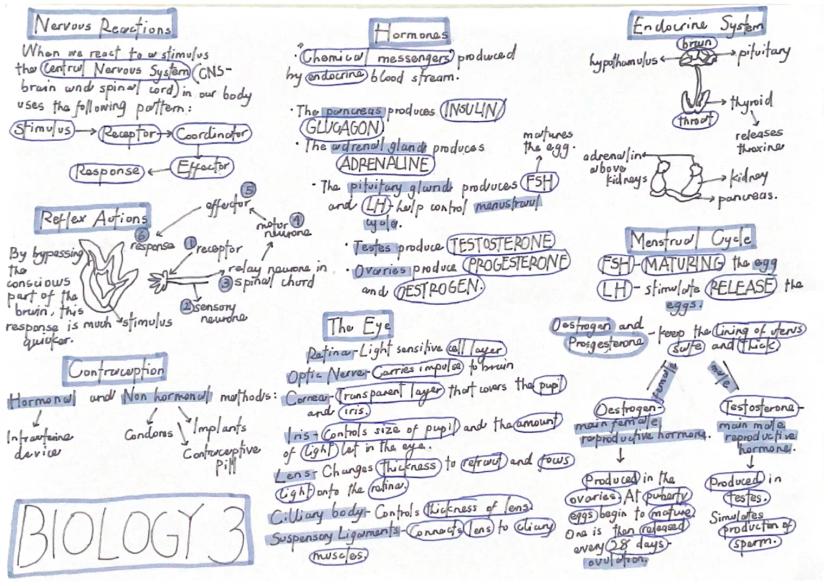 Nervous Reactions
When we react to a stimulus
the Central Nervous System (CNS-
brain and spinal cord) in our body
uses the following pattern:
Stimulus → Receptor → Coordinator
Response ← Effector
Reflex Actions
By bypassing
the
conscious
part of the
brain, this
response is much
quicker.
stimulus
⑥ response
① receptor
② sensory
neurone
③ relay neurone in
spinal chord
④
motor
neurone
⑤
effector
Contraception
Hormonal and Non hormonal methods:
Intrauterine
device
Condoms
Implants
Contraceptive
Pill
BIOLOGY 3
Hormones
"Chemical messengers" produced
by endocrine blood stream.
• The pancreas produces INSULIN/
GLUCAGON
• The adrenal glands produces
ADRENALINE
matures
the egg.
• The pituitary glands produces FSH
and LH - help control menstrual
cycle.
• Testes produce TESTOSTERONE
• Ovaries produce PROGESTERONE
and OESTROGEN.
The Eye
Retina - Light sensitive cell layer
Optic Nerve - Carries impulse to brain
Cornea - Transparent layer that covers the pupil
and iris.
Iris - Controls size of pupil and the amount
of light let in the eye.
Lens - Changes thickness to refract and focus
light onto the retina.
Cilliary body - Controls thickness of lens
Suspensory Ligaments - Connects lens to cliary
muscles
Endocrine System
brain
hypothamulus
pituitary
throat
thyroid
releases
adrenal in
above
kidneys
kidney
pancreas.
Menstrual Cycle
FSH - MATURING the egg
LH - stimulate RELEASE the
eggs.
Oestrogen and
Progesterone - keep the lining of uterus
safe and thick
female
male
Oestrogen -
main female
reproductive hormone.
Produced in the
ovaries. At puberty
eggs begin to mature.
One is then released
every 28 days -
ovulation.
Testosterone -
main male
reproductive
hormone.
Produced in
testes.
Simulates
production of
sperm.